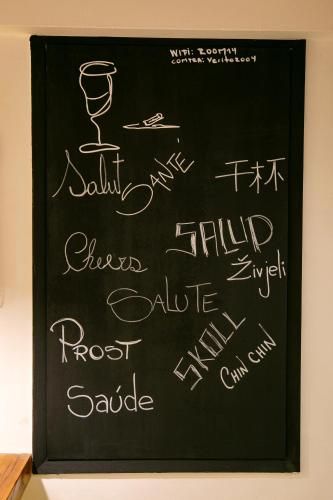 WIFI: ROOM14
CONTRA: Verito2004
Salut
SANTÉ
干杯
SALUD
Cheers
Živjeli
SALUTE
PROST
SKOLL
CHIN CHIN
Saúde